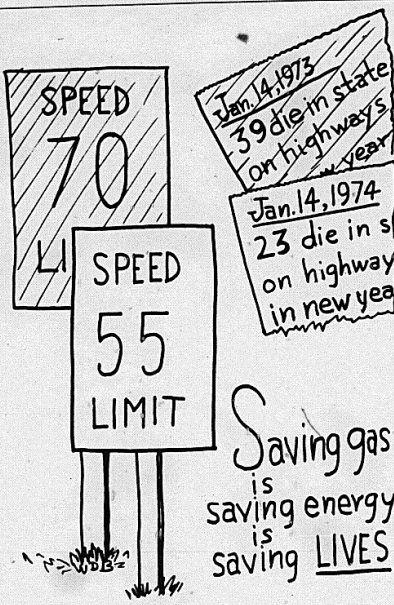 SPEED
70
LI
SPEED
55
LIMIT
Jan. 14, 1973
39 die in state
on highways
w year
Jan. 14, 1974
23 die in s
on highway
in new yea
Saving gas
is
saving energy
is
saving LIVES